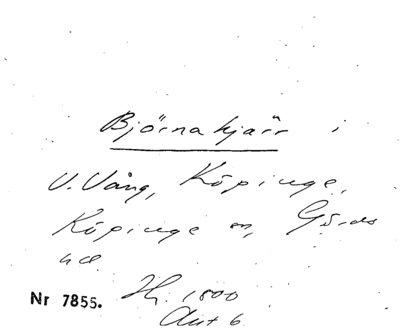 Björnakjärr i
V. Vång, Köpinge,
Köpinge sn, Gärds
hd.
Nr 7855. Hj. 1800
Akt 6